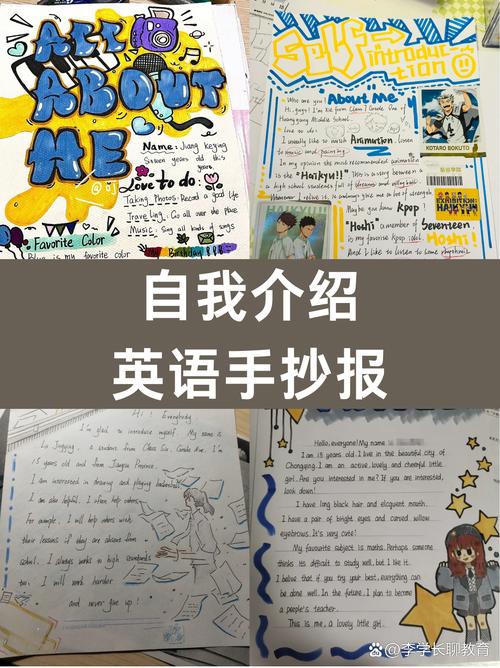 ALL
ABOUT
ME
Name: Jiang keying
Sixteen years old this
years
Love to do:
Taking Photos: Record a good life
Traveling: Go all over the place
Music: Sing all kinds of songs
Favorite Color
is my favorite color
Birthday
Self
introduc
tion
Who are you? About Me
Hi, guys! I'm Xie from Class 1 Grade One of
Middle School
Love to do:
I usually like to watch Animation, listen
to music and painting
In my opinion the most recommended animation
is the "Haikyu!!" This is a story between a
high school students full of dreams and volleyball
Maybe you know Kpop!
Hoshi a member of Seventeen
is my favorite Kpop idol. Hoshi!
And I like to listen to some
KOTARO BOKUTO
HAIKYU!!
自我介绍
英语手抄报
Hi! Everybody
I'm glad to introduce myself. My name is
Lu Jingying, a student from Class Six, Grade One. I'm
15 years old and from Jiangxi Province.
I am interested in drawing and playing badminton.
I am also helpful. I often help others.
For example, I will help others with
their lessons if they are absent from
school. I always works to high standards
too, I will work harder
and never give up!
Hello, everyone! My name is
I am 15 years old. I live in the beautiful city of
Chongqing. I am an active, lovely and cheerful little
girl. Are you interested in me? If you are interested,
look down!
I have long black hair and eloquent mouth.
I have a pair of bright eyes and curved willow
eyebrows. It's very cute!
My favourite subject is maths. Perhaps someone
thinks its difficult to study well, but I like it.
I believe that if you try your best, everything can
be done well. In the future, I plan to become
a people's teacher.
This is me, a lovely little girl.
百家号/李学长聊教育